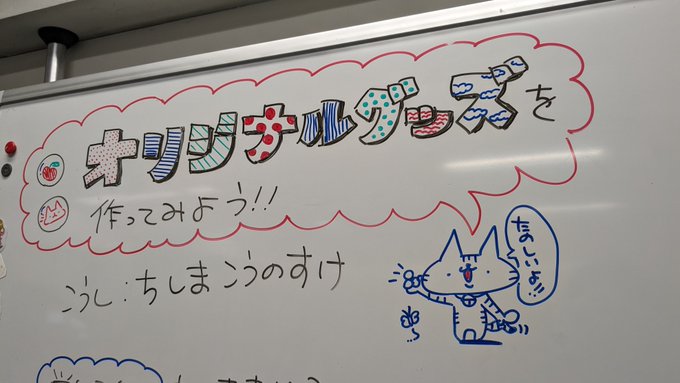 オリジナルグッズを
作ってみよう!!
こうし:ちしまこうのすけ
たのしいよ!!